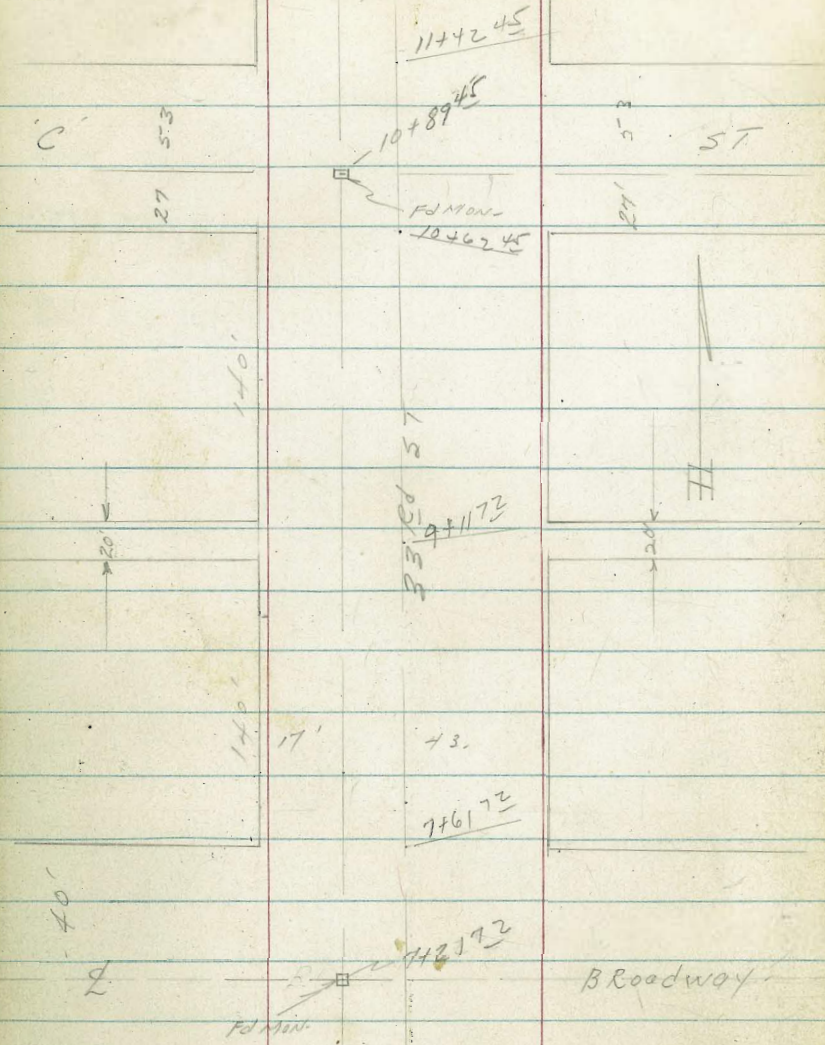 11+42 45
10+89 45
'C' 53 53 ST
27 27'
Fd MON-
10+62 45
140'
33 Rd ST
9+11 72
20' 20'
140'
17' 43.
7+61 72
40'
7+21 72
℄ BRoadway
Fd MON-